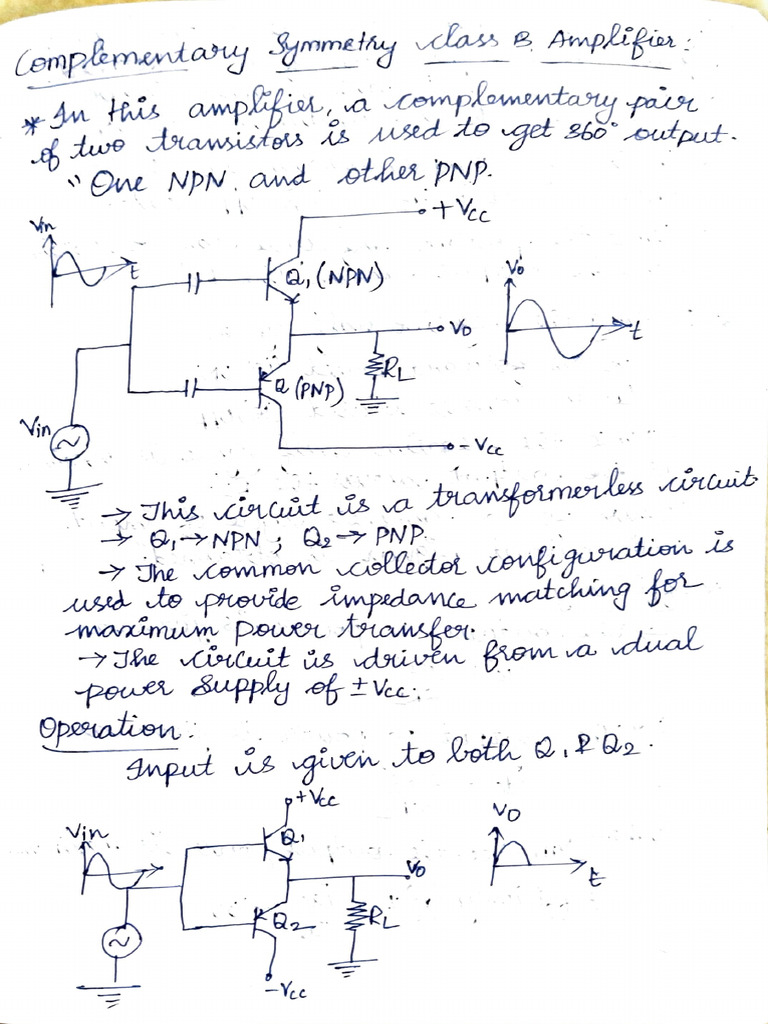 Complementary Symmetry class B Amplifier:
* In this amplifier, a complementary pair
of two transistors is used to get 360° output.
" One NPN and other PNP.
+Vcc
Vin
t
Q1 (NPN)
Vo
t
Vo
RL
Q (PNP)
Vin
-Vcc
→ This circuit is a transformerless circuit
→ Q1→NPN ; Q2→ PNP.
→ The common collector configuration is
used to provide impedance matching for
maximum power transfer.
→ The circuit is driven from a dual
power supply of ±Vcc.
Operation:
Input is given to both Q1 & Q2.
+Vcc
Vin
Q1
Vo
t
Vo
Q2
RL
-Vcc